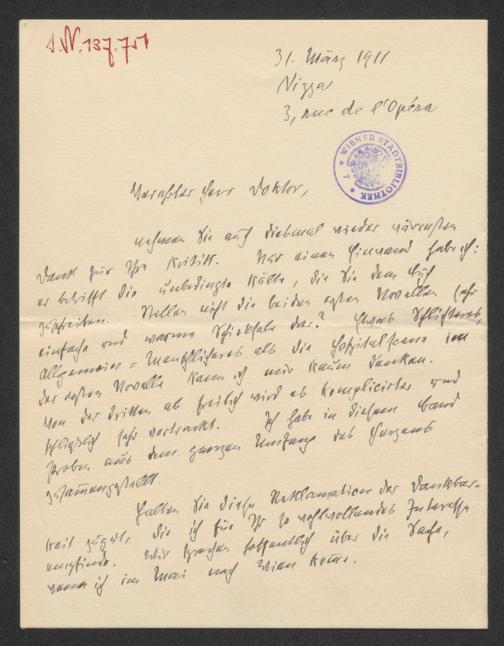 I.N. 137.751
31. März 1911
Nizza
3, rue de l'Opéra
WIENER STADTBIBLIOTHEK
Verehrter Herr Doktor,
nehmen Sie auch diesmal wieder wärmsten
Dank für Ihre Kritik. Nur einen Einwand habe ich:
er betrifft die unbedingte Kälte, die Sie dem Buch
zuschreiben. Stellen nicht die beiden ersten Novellen sehr
einfache und warme Schicksale dar? Etwas Schlichteres,
Allgemein-Menschlicheres als die Hospitalszene in
der ersten Novelle kann ich mir kaum denken.
Von der dritten ab freilich wird es komplicirter und
schließlich sehr vertrackt. Ich habe in diesem Band
Proben aus dem ganzen Umfang des Herzens
zusammengestellt.
Halten Sie diese Reklamation der Dankbar-
keit zugut, die ich für Ihr so wohlwollendes Interesse
empfinde. Wir sprechen hoffentlich über die Sache,
wenn ich im Mai nach Wien komme.